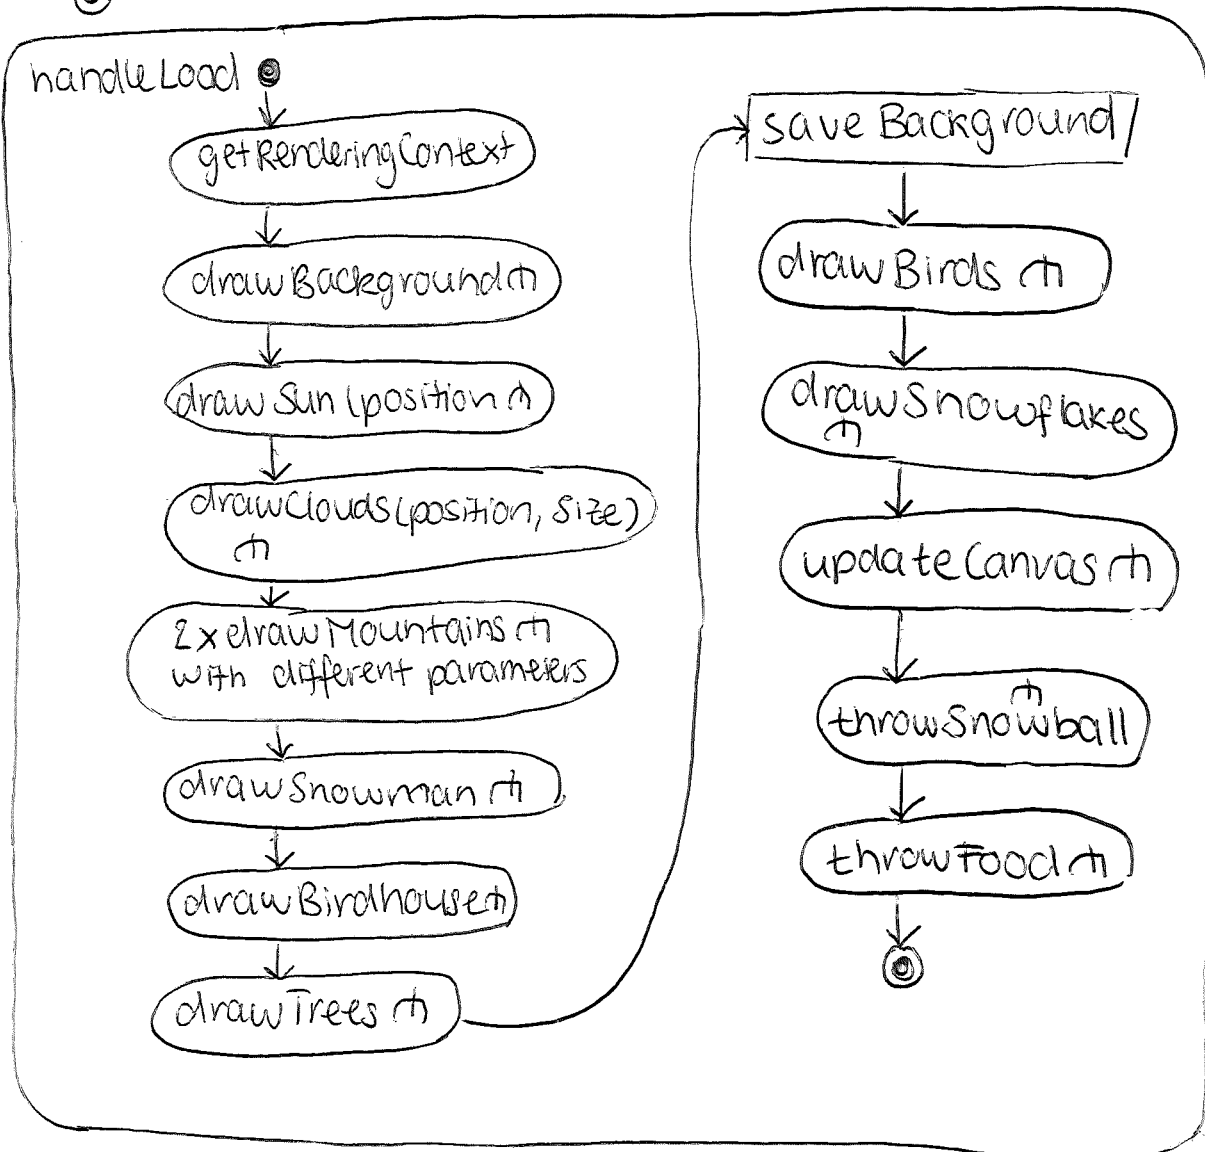 handleLoad
getRenderingContext
drawBackground
drawSun(position
drawClouds(position, size)
2x drawMountains
with different parameters
drawSnowman
drawBirdhouse
drawTrees
saveBackground
drawBirds
drawSnowflakes
updateCanvas
throwSnowball
throwFood